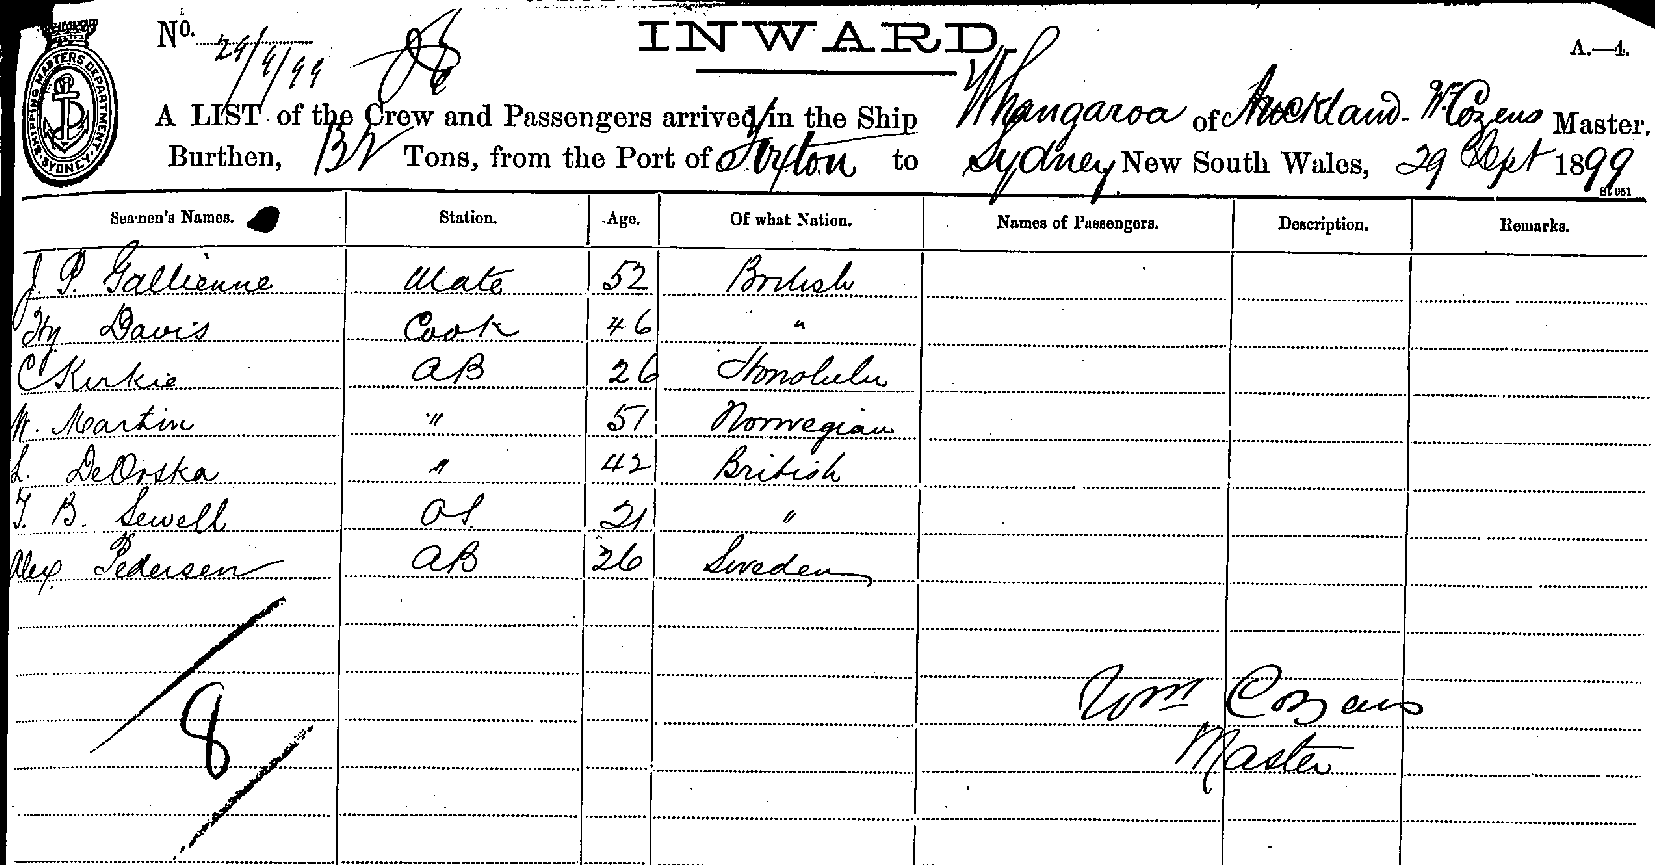 No. 29/9/99
INWARD
A.—4.
SHIPPING MASTERS DEPARTMENT. SYDNEY.
A LIST of the Crew and Passengers arrived in the Ship Whangaroa of Auckland. Wm Cozens Master,
Burthen, Tons, from the Port of Foxton to Sydney New South Wales, 29 Sept 1899
Seamen's Names. Station. Age. Of what Nation. Names of Passengers. Description. Remarks.
J. P. Gallienne Mate 52 British
Hy Davis Cook 46 "
C Kirkie AB 26 Honolulu
W. Martin " 51 Norwegian
L. DeOrska " 42 British
F. B. Sewell OS 21 "
Alex Pedersen AB 26 Sweden
8
Wm Cozens
Master